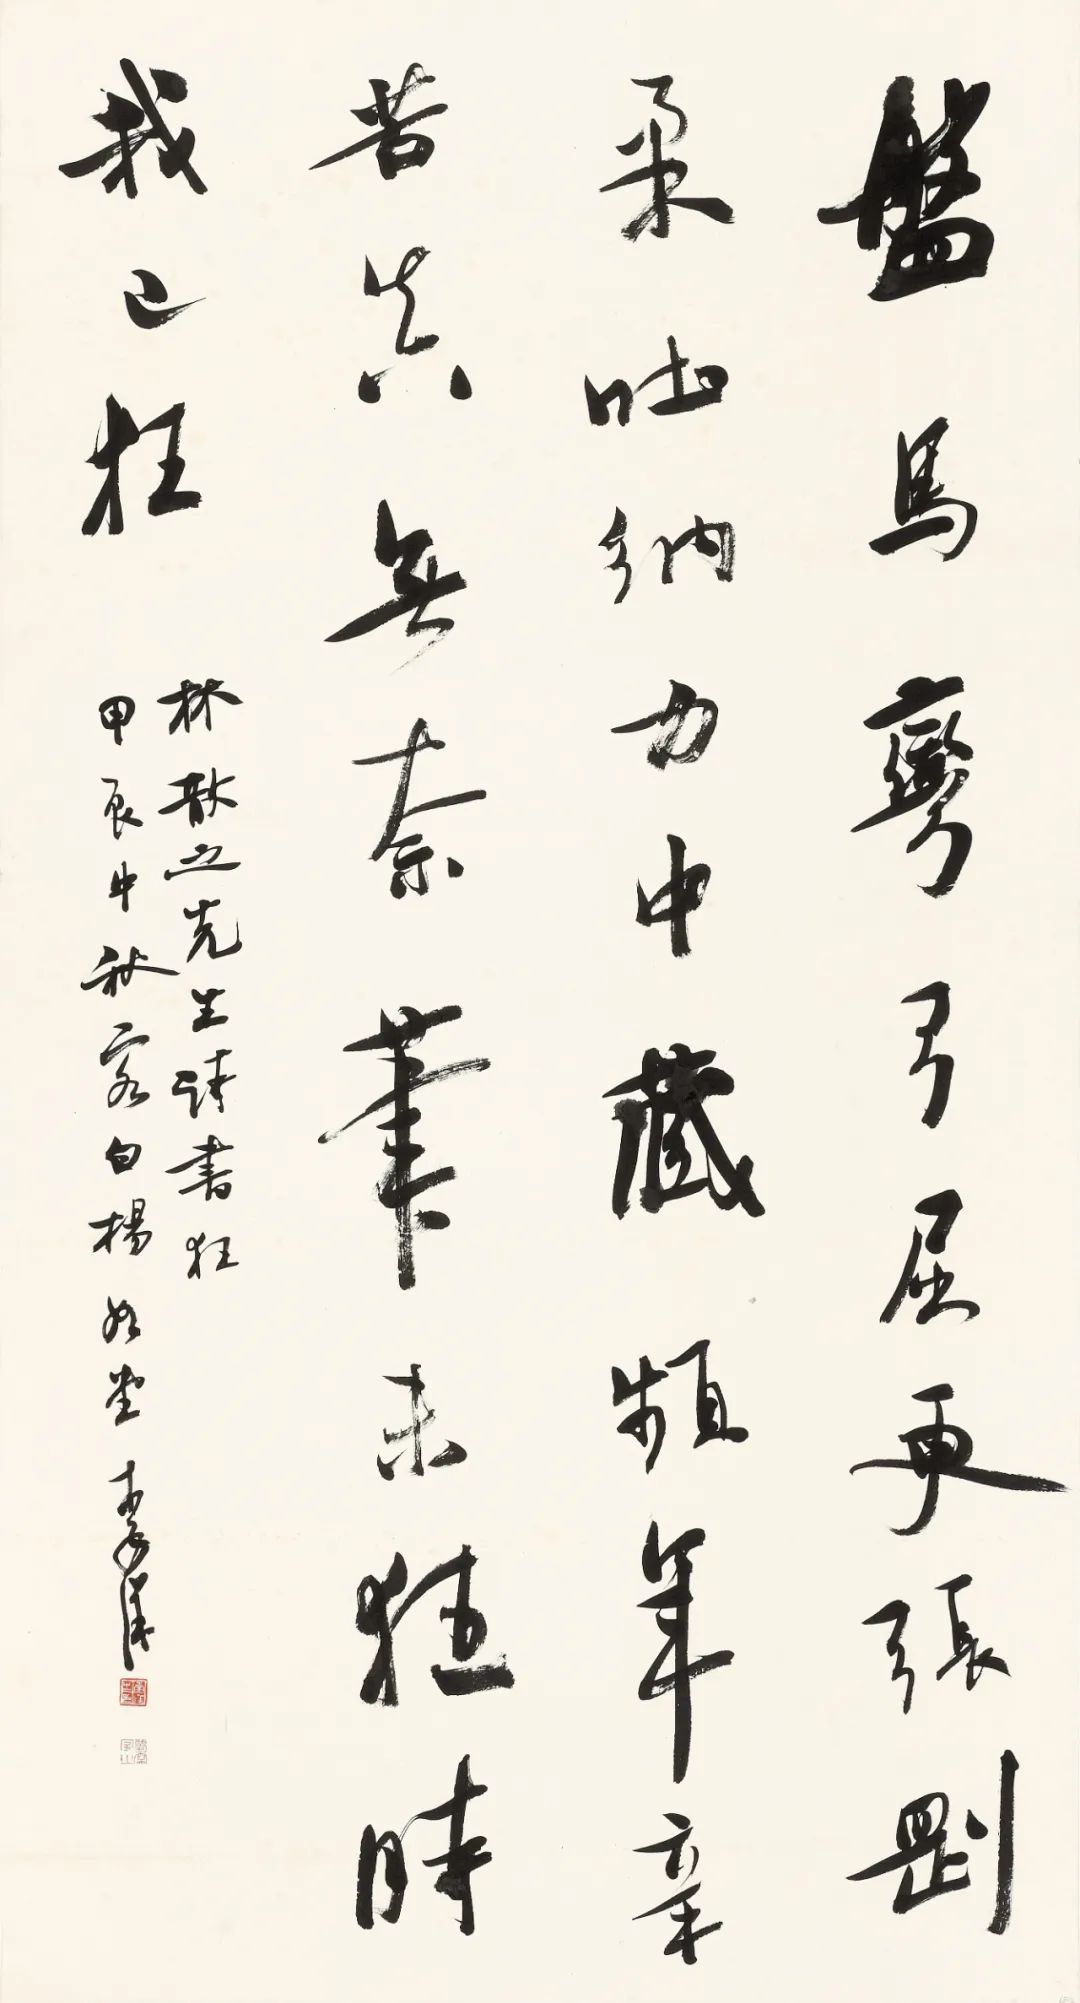 盤馬彎弓屈更張剛
柔吐納力中藏頻年辛
苦真無奈筆未狂時
我已狂
林散之先生詩書狂
甲辰中秋客白楊